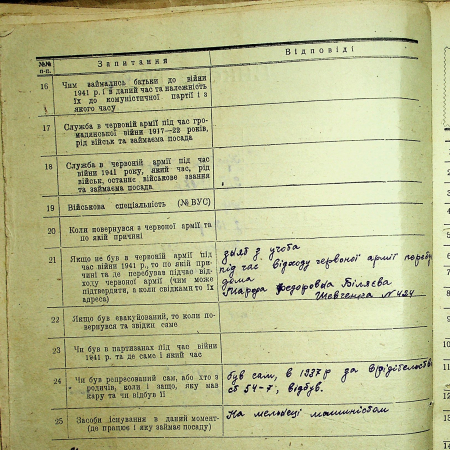 №№ п-п.
Запитання
Відповіді
16
Чим займались батьки до війни
1941 р. і в даний час та належність
їх до комуністичної партії і з
якого часу
17
Служба в червоній армії під час гро-
мадянської війни 1917—22 років,
рід військ та займаєма посада
18
Служба в червоній армії під час
війни 1941 року, який час, рід
військ, останнє військове звання
та займаєма посада
19
Військова спеціяльність (№ ВУС)
20
Коли повернувся з червоної армії та
по якій причині
21
Якщо не був в червоній армії під
час війни 1941 р., то по якій при-
чині та де перебував підчас від-
ходу червоної армії (чим може
підтвердити, а коли свідками то їх
адреса)
зняв з учота
під час відходу червоної армії перебу
дома
Федоровна Біляєва
Шевченка № 424
22
Якщо був евакуйований, то коли по-
вернувся та звідки саме
23
Чи був в партизанах під час війни
1941 р. та де саме і який час
24
Чи був репресований сам, або хто з
родичів, коли і защо, яку мав
кару та чи відбув її
був сам, в 1937 р за
ст 54-7, відбув.
25
Засоби існування в даний момент-
(де працює і яку займає посаду)
На мельниці машиністом